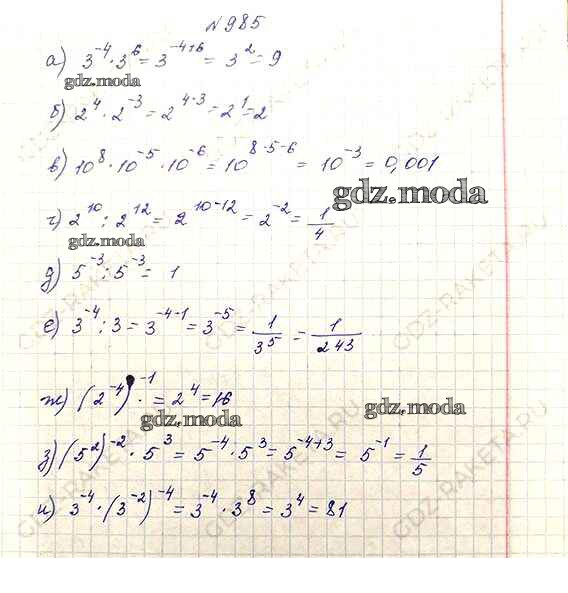 №985
а) 3⁻⁴·3⁶=3⁻⁴⁺⁶=3²=9
gdz.moda
б) 2⁴·2⁻³=2⁴⁻³=2¹=2
в) 10⁸·10⁻⁵·10⁻⁶=10⁸⁻⁵⁻⁶=10⁻³=0,001
gdz.moda
г) 2¹⁰:2¹²=2¹⁰⁻¹²=2⁻²=1/4
gdz.moda
д) 5⁻³:5⁻³=1
е) 3⁻⁴:3=3⁻⁴⁻¹=3⁻⁵=1/3⁵=1/243
ж) (2⁻⁴)⁻¹=2⁴=16
gdz.moda
gdz.moda
з) (5²)⁻²·5³=5⁻⁴·5³=5⁻⁴⁺³=5⁻¹=1/5
и) 3⁻⁴·(3⁻²)⁻⁴=3⁻⁴·3⁸=3⁴=81
GDZ-RAKETA.RU
GDZ-RAKETA.RU
GDZ-RAKETA.RU
GDZ-RAKETA.RU